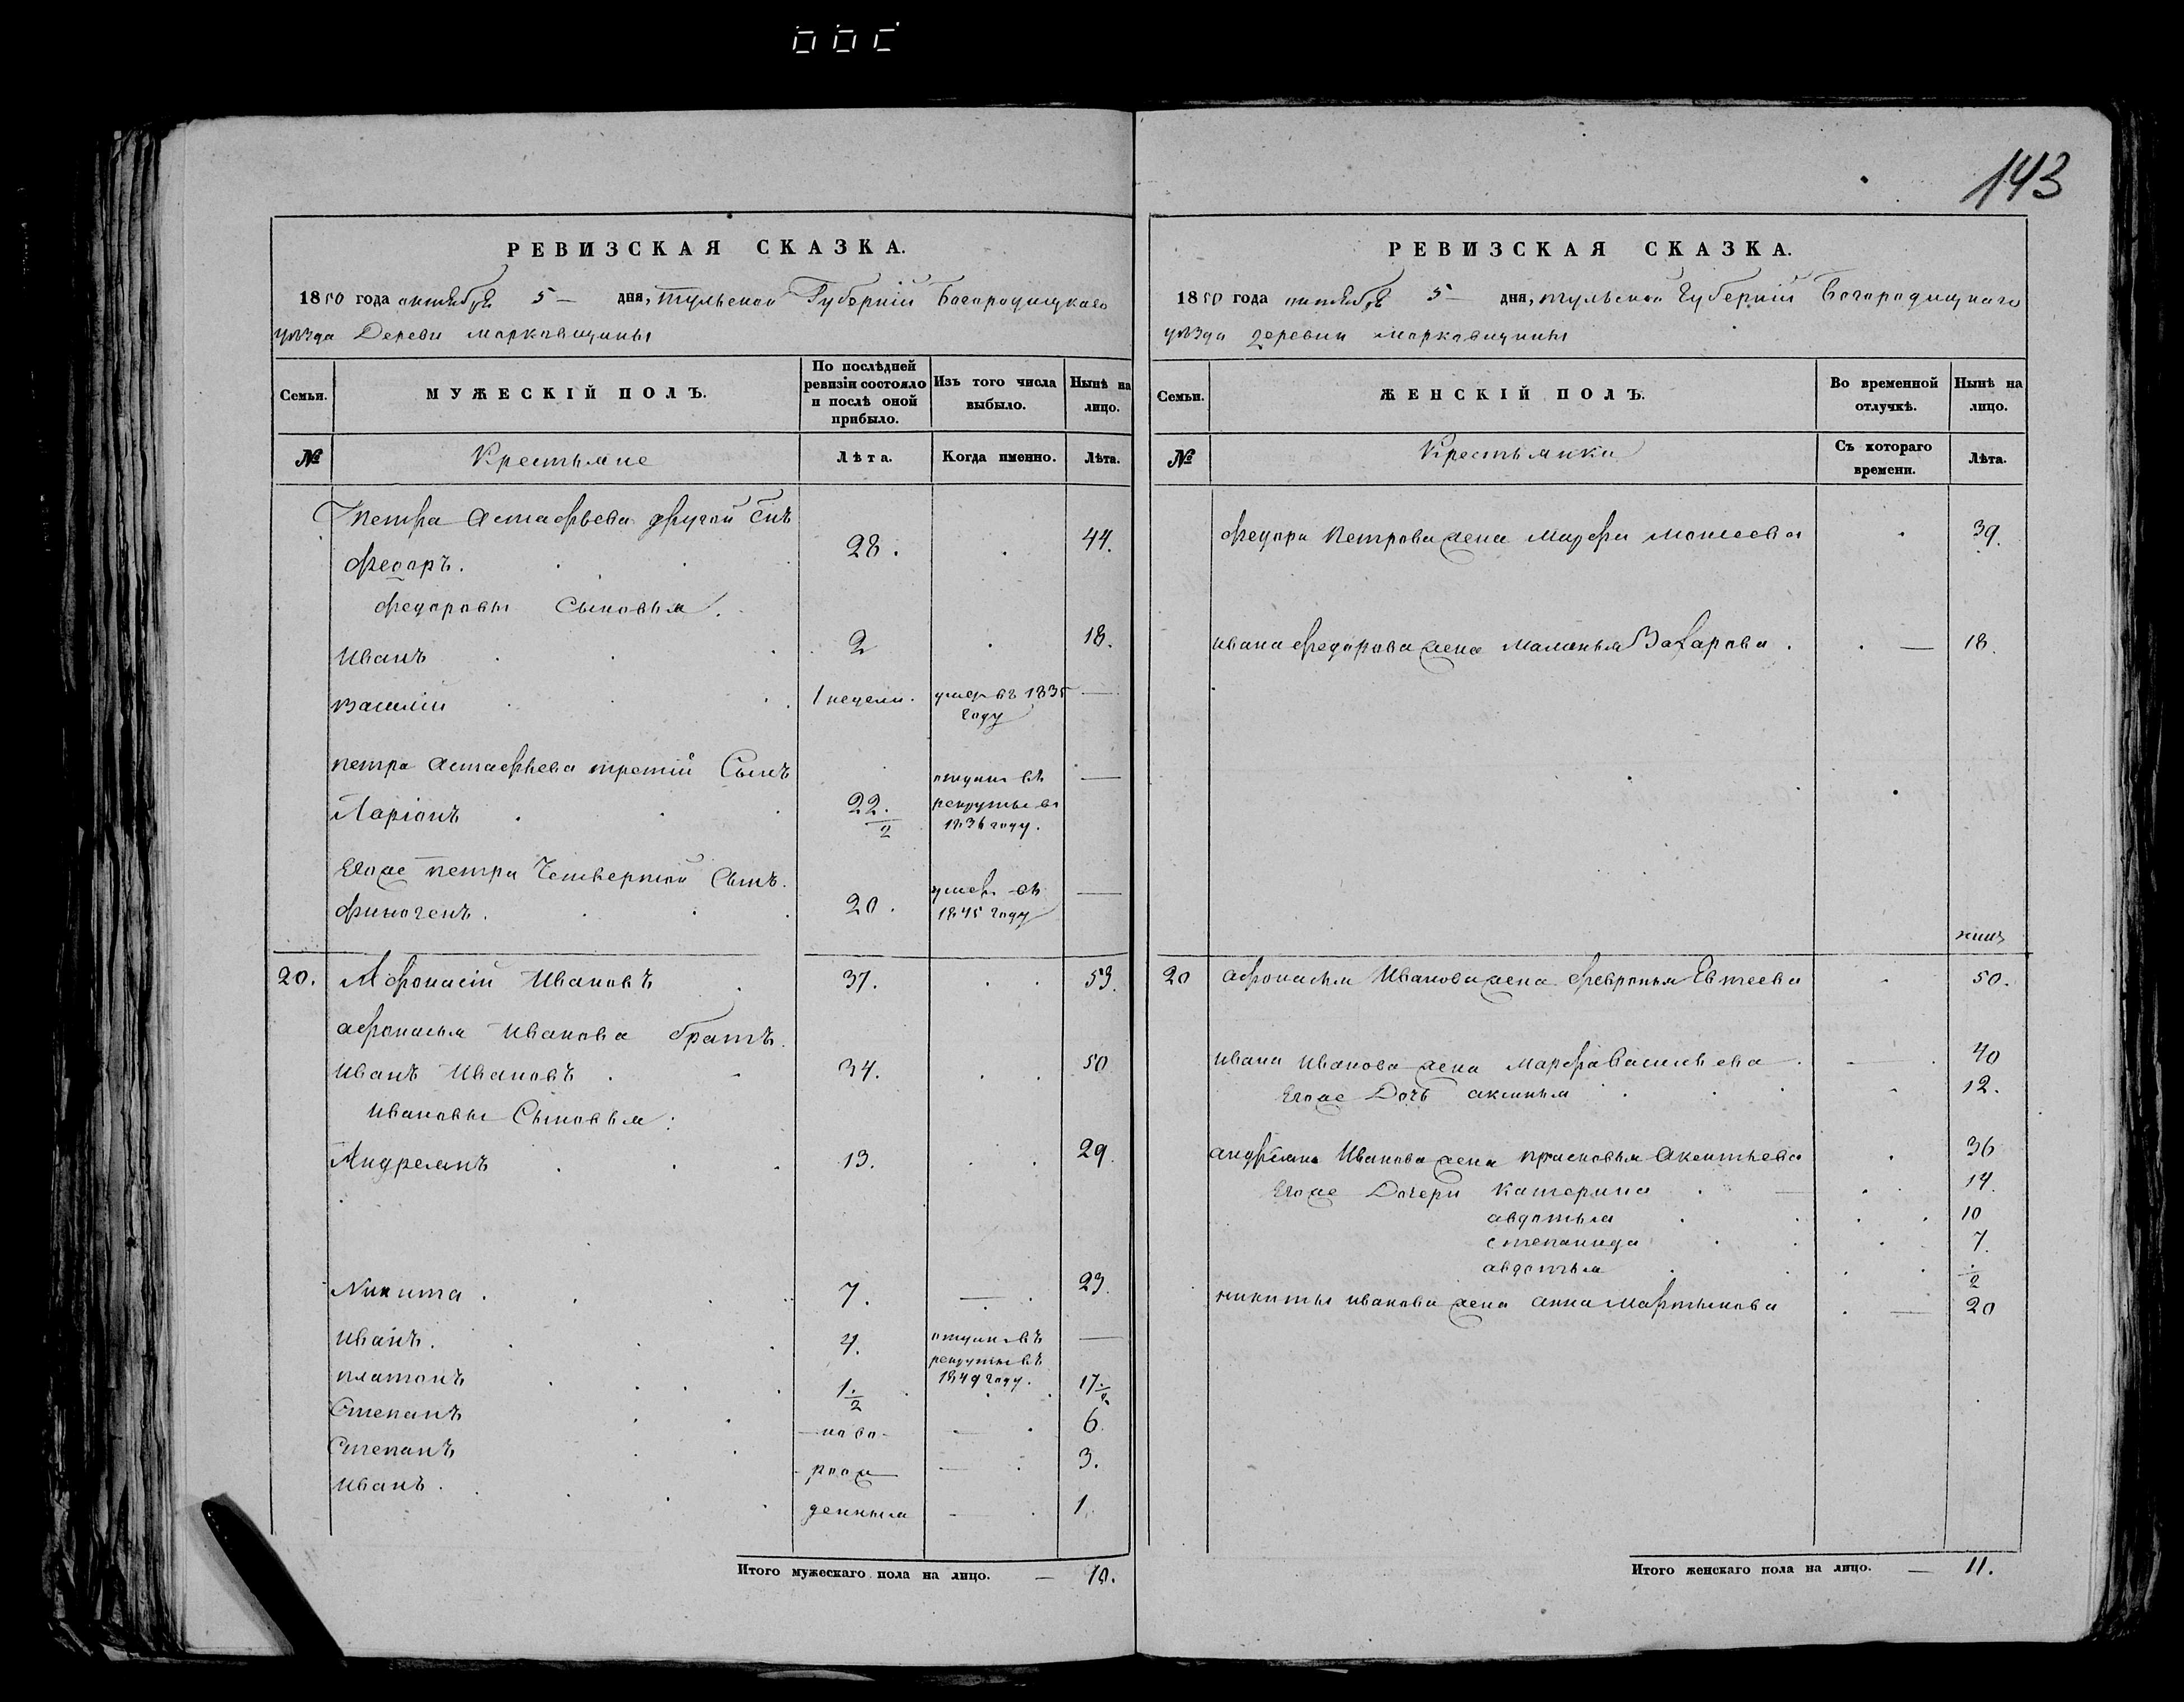 143
РЕВИЗСКАЯ СКАЗКА.
1850 года октября 5 — дня, тульской Губернiй Богородицкаго
уѣзда Деревн марковщины
Семьи.
МУЖЕСКІЙ ПОЛЪ.
По послѣдней ревизіи состояло и послѣ оной прибыло.
Изъ того числа выбыло.
Нынѣ на лицо.
№
Крестьяне
Лѣта.
Когда именно.
Лѣта.
Петра Астафьева другой снъ
федоръ. 28. 44.
федоровы Сыновья.
Иванъ 2 18.
василiи 1 недели. умер въ 1835 —
году
петра Астафьева третiй Сынъ отданъ въ —
Ларiонъ 22. 1/2 рекруты въ
1836 году.
Егоже петра Четвертой Сынъ.
финогенъ. 20. умеръ въ —
1845 году
20. Афонасiй Ивановъ 37. 53.
афонасья Иванова братъ.
Иванъ Ивановъ 34. 50
Ивановы Сыновья:
Андреянъ 13. 29.
Никита. 7. — 23.
Иванъ. 4. отданъ въ —
рекруты въ
1849 году.
платонъ 1 1/2 17 1/2
Степанъ — ново — 6.
Степанъ — рож — 3.
Иванъ. денныя — 1.
Итого мужескаго пола на лицо. — 10.
РЕВИЗСКАЯ СКАЗКА.
1850 года октября 5 — дня, тульской Губернiй Богородицкаго
уѣзда деревни марковщины
Семьи.
ЖЕНСКІЙ ПОЛЪ.
Во временной отлучкѣ.
Нынѣ на лицо.
№
Крестьянки
Съ котораго времени.
Лѣта.
федора Петрова жена Марфа мосеева 39.
ивана федорова жена Маланья Захарова. — 18.
20 афонасья Иванова жена феврония Евтеева 50.
ивана Иванова жена Марфа Васильева. — 40
Егоже Дочь аксинья 12.
андреяна Иванова жена прасковья Акентьева 36
Егоже Дочери Катерина — 14.
авдотья 10
степанида 7.
авдотья 1/2
никиты иванова жена анна Мартынова — 20
Итого женскаго пола на лицо. — 11.